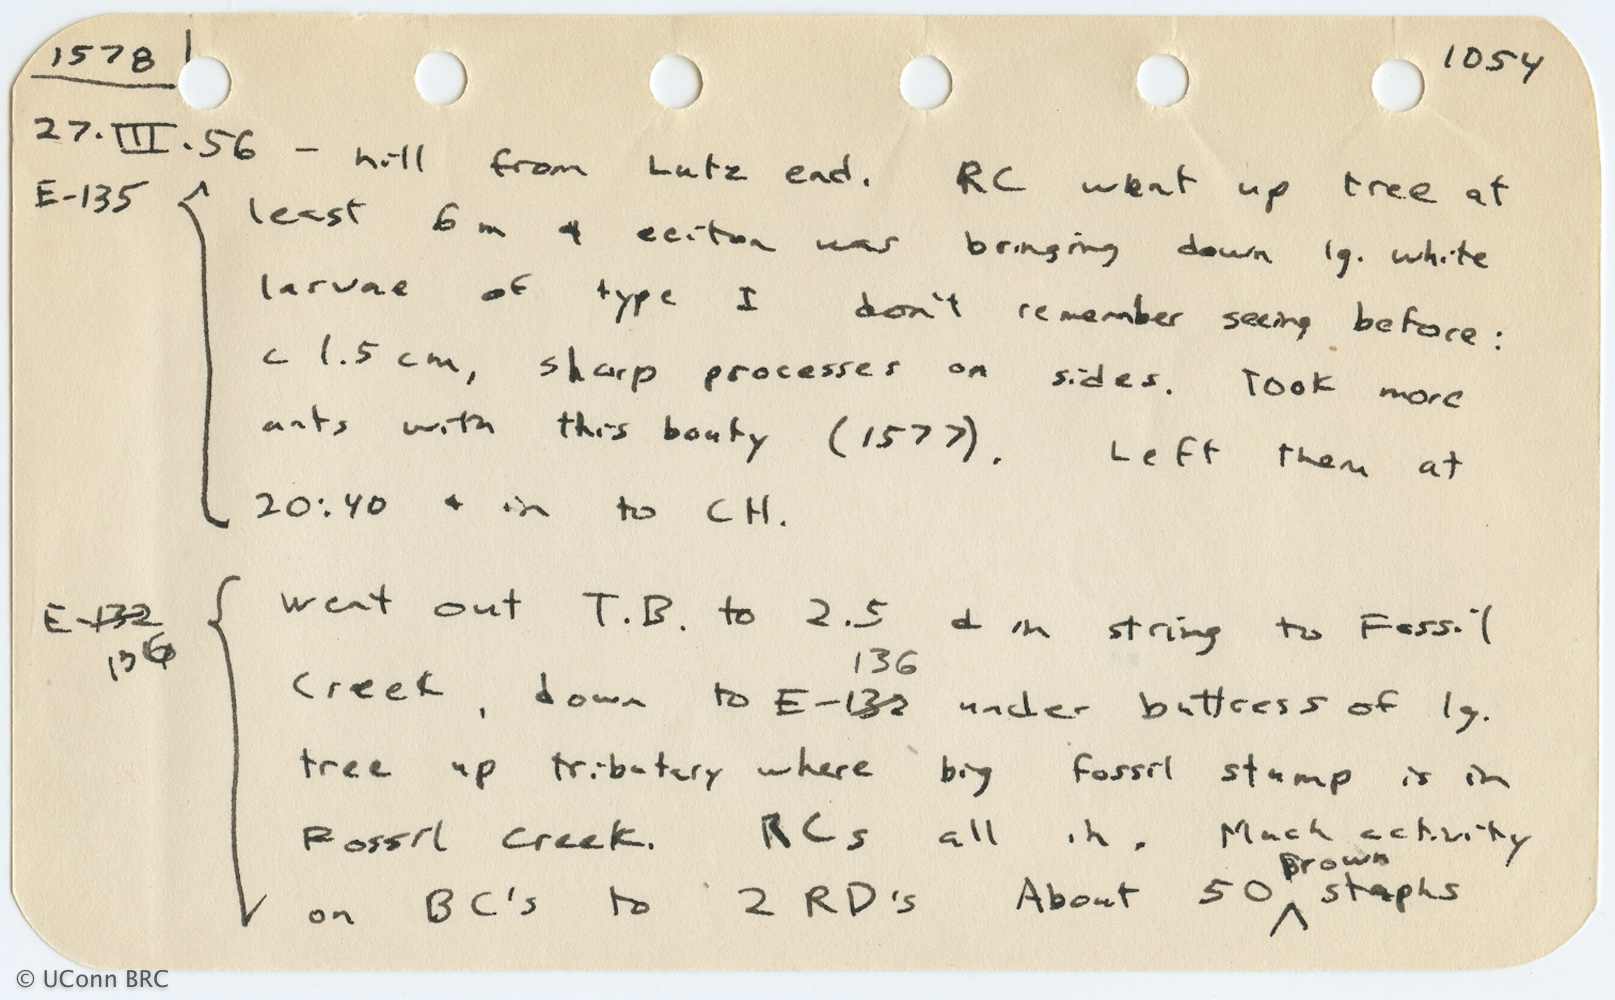 1578
1054
27.III.56 - hill from Lutz end. RC went up tree at
E-135
least 6 m & eciton was bringing down lg. white
larvae of type I don't remember seeing before:
c 1.5 cm, sharp processes on sides. Took more
ants with this booty (1577). Left them at
20:40 & in to CH.
E-132
136
Went out T.B. to 2.5 & in string to Fossil
136
Creek, down to E-132 under buttress of lg.
tree up tributary where big fossil stump is in
Fossil Creek. RCs all in. Much activity
brown
on BC's to 2 RD's About 50 ^ staphs
© UConn BRC